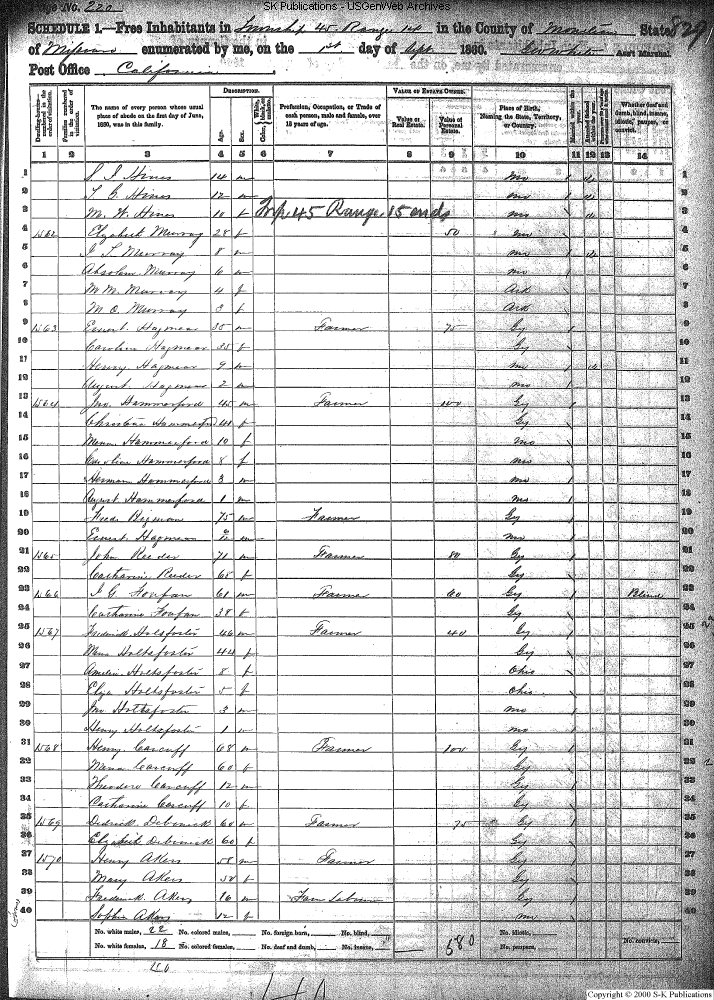 SK Publications - USGenWeb Archives
Page No. 220
SCHEDULE 1.—Free Inhabitants in Township 45 Range 14 in the County of Moniteau State
of Missouri enumerated by me, on the 1st day of Sept 1860. Ass't Marshal.
Post Office California
DESCRIPTION. VALUE OF ESTATE OWNED.
The name of every person whose usual place of abode on the first day of June, 1860, was in this family.
Age. Sex.
Profession, Occupation, or Trade of each person, male and female, over 15 years of age.
Value of Real Estate. Value of Personal Estate.
Place of Birth, Naming the State, Territory, or Country.
Whether deaf and dumb, blind, insane, idiotic, pauper, or convict.
1 2 3 4 5 6 7 8 9 10 11 12 13 14
1 S J Hines 14 m Mo 1
2 T G Hines 12 m Mo 2
3 M. W. Hines 10 f Twp 45 Range 15 ends Mo 3
4 1562 Elizabeth Murray 28 f 50 Mo 4
5 J. T. Murray 8 m Mo 5
6 Absolem Murray 6 m Mo 6
7 M. M. Murray 4 f Ark 7
8 M. C. Murray 3 f Ark 8
9 1563 Ernest Hagmear 35 m Farmer 75 Gy 9
10 Caroline Hagmear 35 f Gy 10
11 Henry Hagmear 9 m Mo 11
12 August Hagmear 2 m Mo 12
13 1564 Jno. Hammerford 45 m Farmer 100 Gy 13
14 Christena Hammerford 41 f Gy 14
15 Mena Hammerford 10 f Mo 15
16 Caroline Hammerford 8 f Mo 16
17 Herman Hammerford 3 m Mo 17
18 August Hammerford 1 m Mo 18
19 75 m Farmer Gy 19
20 Ernest Hagmear m Mo 20
21 1565 John Rieder 71 m Farmer 80 Gy 21
22 Catharine Rieder 65 f Gy 22
23 1566 J. G. 61 m Farmer 60 Gy Blind 23
24 Catharine 38 f Gy 24
25 1567 Frederick Holtsfoster 46 m Farmer 40 Gy 25
26 Mena Holtsfoster 44 f Gy 26
27 Amelia Holtsfoster 8 f Ohio 27
28 Eliza Holtsfoster 5 f Ohio 28
29 Jno Holtsfoster 3 m Mo 29
30 Henry Holtsfoster 1 m Mo 30
31 1568 Henry Carcuff 68 m Farmer 100 Gy 31
32 Mena Carcuff 60 f Gy 32
33 Theodore Carcuff 12 m Gy 33
34 Catharine Carcuff 10 f Gy 34
35 1569 Dedrick Debenick 60 m Farmer 75 Gy 35
36 Elizabeth Debenick 60 f Gy 36
37 1570 Henry Akers 58 m Farmer Gy 37
38 Mary Akers 50 f Gy 38
39 Frederick Akers 16 m Farm Laborer Gy 39
40 Sophia Akers 12 f Mo 40
No. white males, 22 No. colored males, No. foreign born, No. blind, No. idiotic,
No. white females, 18 No. colored females, No. deaf and dumb, No. insane, 580 No. paupers, No. convicts,
Copyright © 2000 S-K Publications